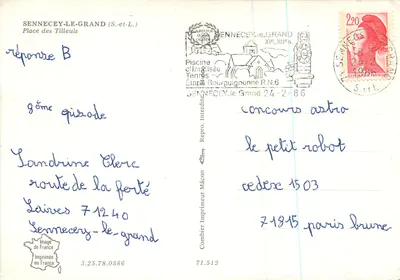 SENNECEY-LE-GRAND (S.-et-L.)
Place des Tilleuls
réponse B
8ème épisode
Sandrine Clerc
route de la ferté
Laives 71240
Sennecey-le-grand
Image
de France
Imprimée
en France
3.25.78.0566
Combier Imprimeur Mâcon
Repro. Interdite
SENNECEY le GRAND
Piscine
Tennis
Etape Bourguignonne R.N.6
SENNECEY le Grand 24-2-86
2,20
S. et L.
concours astro
le petit robot
cedex 1503
71915 paris brune
71.512